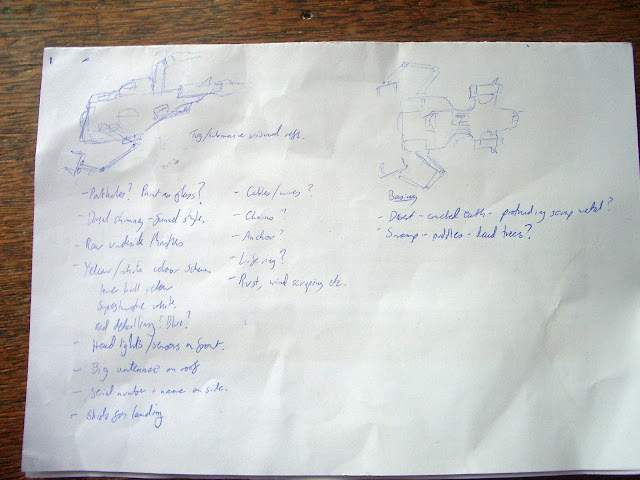 Tug/ visual refs.
- Portholes? Paint as glass?
- Diesel chimney - funnel style.
- Raw underside
- Yellow/white colour scheme
lower hull yellow
Superstructure white
red detailing? Blue?
- Headlights/sensors on front.
- Big antennae on roof
- Serial number + name on side.
- Skids for landing
- Cables/wires?
- Chains?
- Anchor?
- Life ring?
- Rust, wind scraping etc.
Basing
- Desert - cracked earth - protruding scrap metal?
- Swamp - puddles - dead trees?